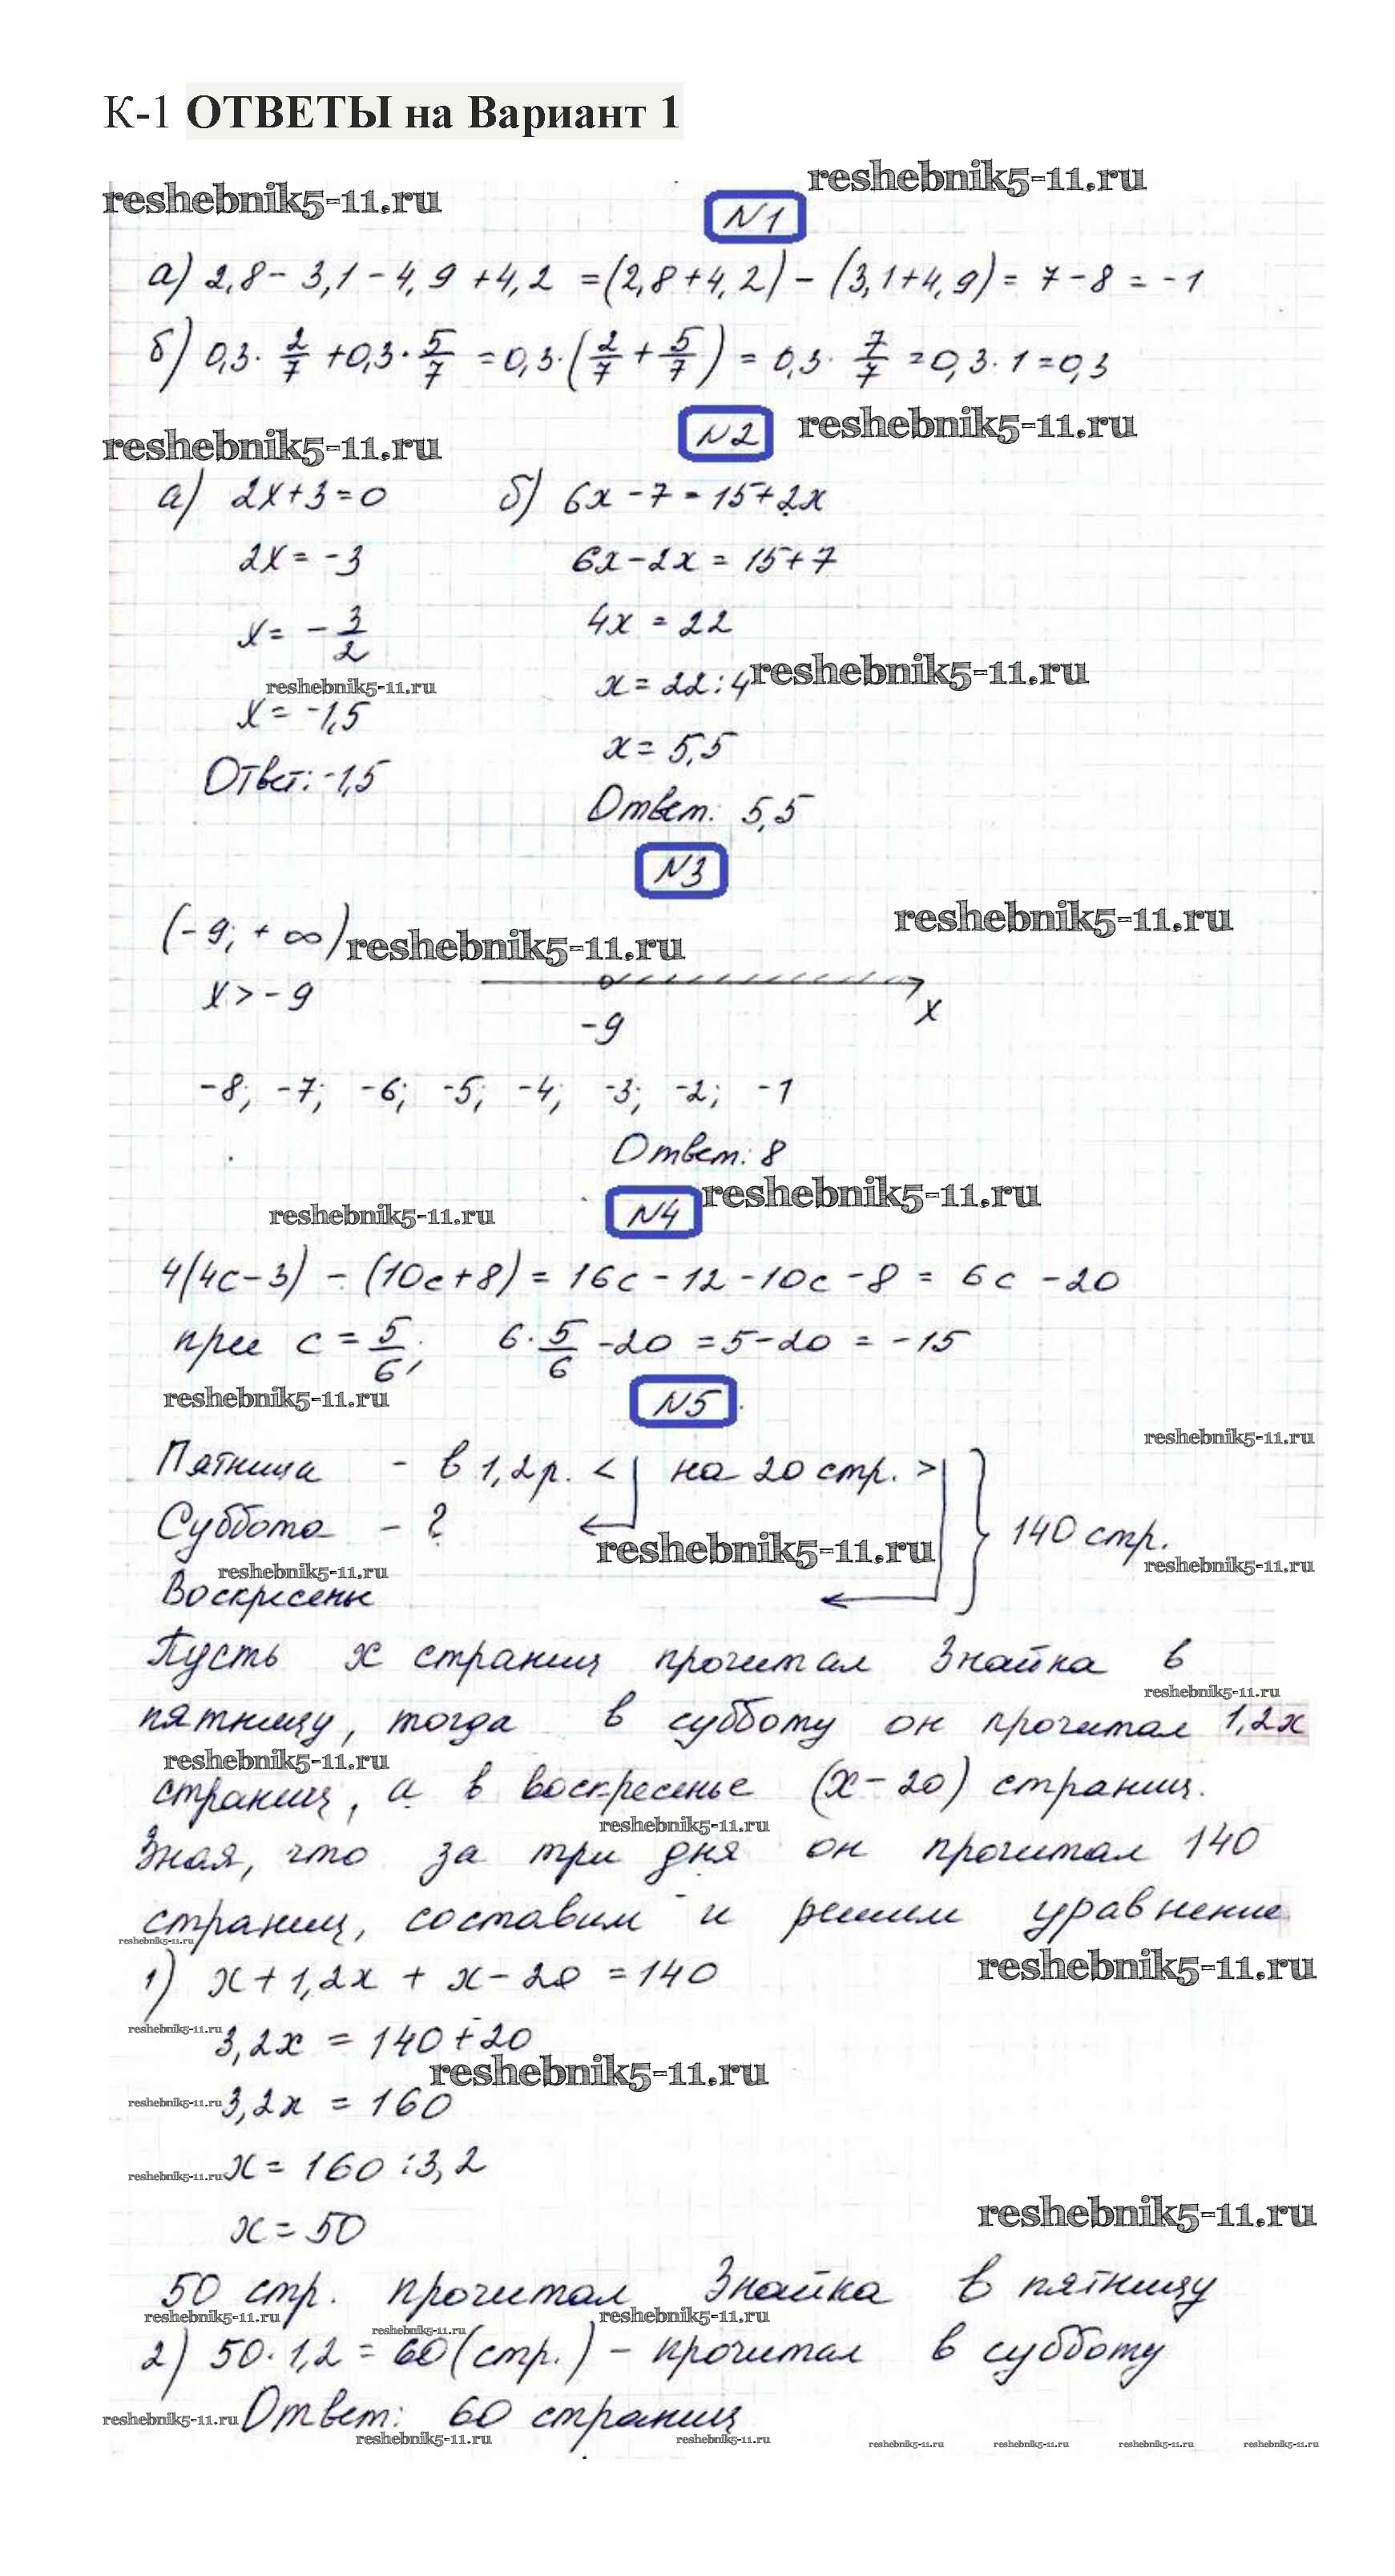 К-1 ОТВЕТЫ на Вариант 1
reshebnik5-11.ru
reshebnik5-11.ru
N1
а) 2,8 - 3,1 - 4,9 + 4,2 = (2,8 + 4,2) - (3,1 + 4,9) = 7 - 8 = -1
б) 0,3 · 2/7 + 0,3 · 5/7 = 0,3 · (2/7 + 5/7) = 0,3 · 7/7 = 0,3 · 1 = 0,3
reshebnik5-11.ru
N2
reshebnik5-11.ru
а) 2x + 3 = 0
2x = -3
x = - 3/2
reshebnik5-11.ru
x = -1,5
Ответ: -1,5
б) 6x - 7 = 15 + 2x
6x - 2x = 15 + 7
4x = 22
x = 22 : 4
reshebnik5-11.ru
x = 5,5
Ответ: 5,5
N3
(-9; +∞)
reshebnik5-11.ru
reshebnik5-11.ru
x > -9
-9
x
-8; -7; -6; -5; -4; -3; -2; -1
Ответ: 8
reshebnik5-11.ru
N4
reshebnik5-11.ru
4(4c - 3) - (10c + 8) = 16c - 12 - 10c - 8 = 6c - 20
при c = 5/6; 6 · 5/6 - 20 = 5 - 20 = -15
reshebnik5-11.ru
N5
reshebnik5-11.ru
Пятница - в 1,2 р. < на 20 стр. >
Суббота - ?
140 стр.
reshebnik5-11.ru
reshebnik5-11.ru
reshebnik5-11.ru
Воскресенье
Пусть x страниц прочитал Знайка в
reshebnik5-11.ru
пятницу, тогда в субботу он прочитал 1,2x
reshebnik5-11.ru
страниц, а в воскресенье (x - 20) страниц.
reshebnik5-11.ru
Зная, что за три дня он прочитал 140
страниц, составим и решим уравнение
reshebnik5-11.ru
reshebnik5-11.ru
1) x + 1,2x + x - 20 = 140
reshebnik5-11.ru
3,2x = 140 + 20
reshebnik5-11.ru
reshebnik5-11.ru
3,2x = 160
reshebnik5-11.ru
x = 160 : 3,2
reshebnik5-11.ru
x = 50
50 стр. прочитал Знайка в пятницу
reshebnik5-11.ru
reshebnik5-11.ru
reshebnik5-11.ru
2) 50 · 1,2 = 60 (стр.) - прочитал в субботу
reshebnik5-11.ru
Ответ: 60 страниц
reshebnik5-11.ru
reshebnik5-11.ru
reshebnik5-11.ru
reshebnik5-11.ru
reshebnik5-11.ru
reshebnik5-11.ru